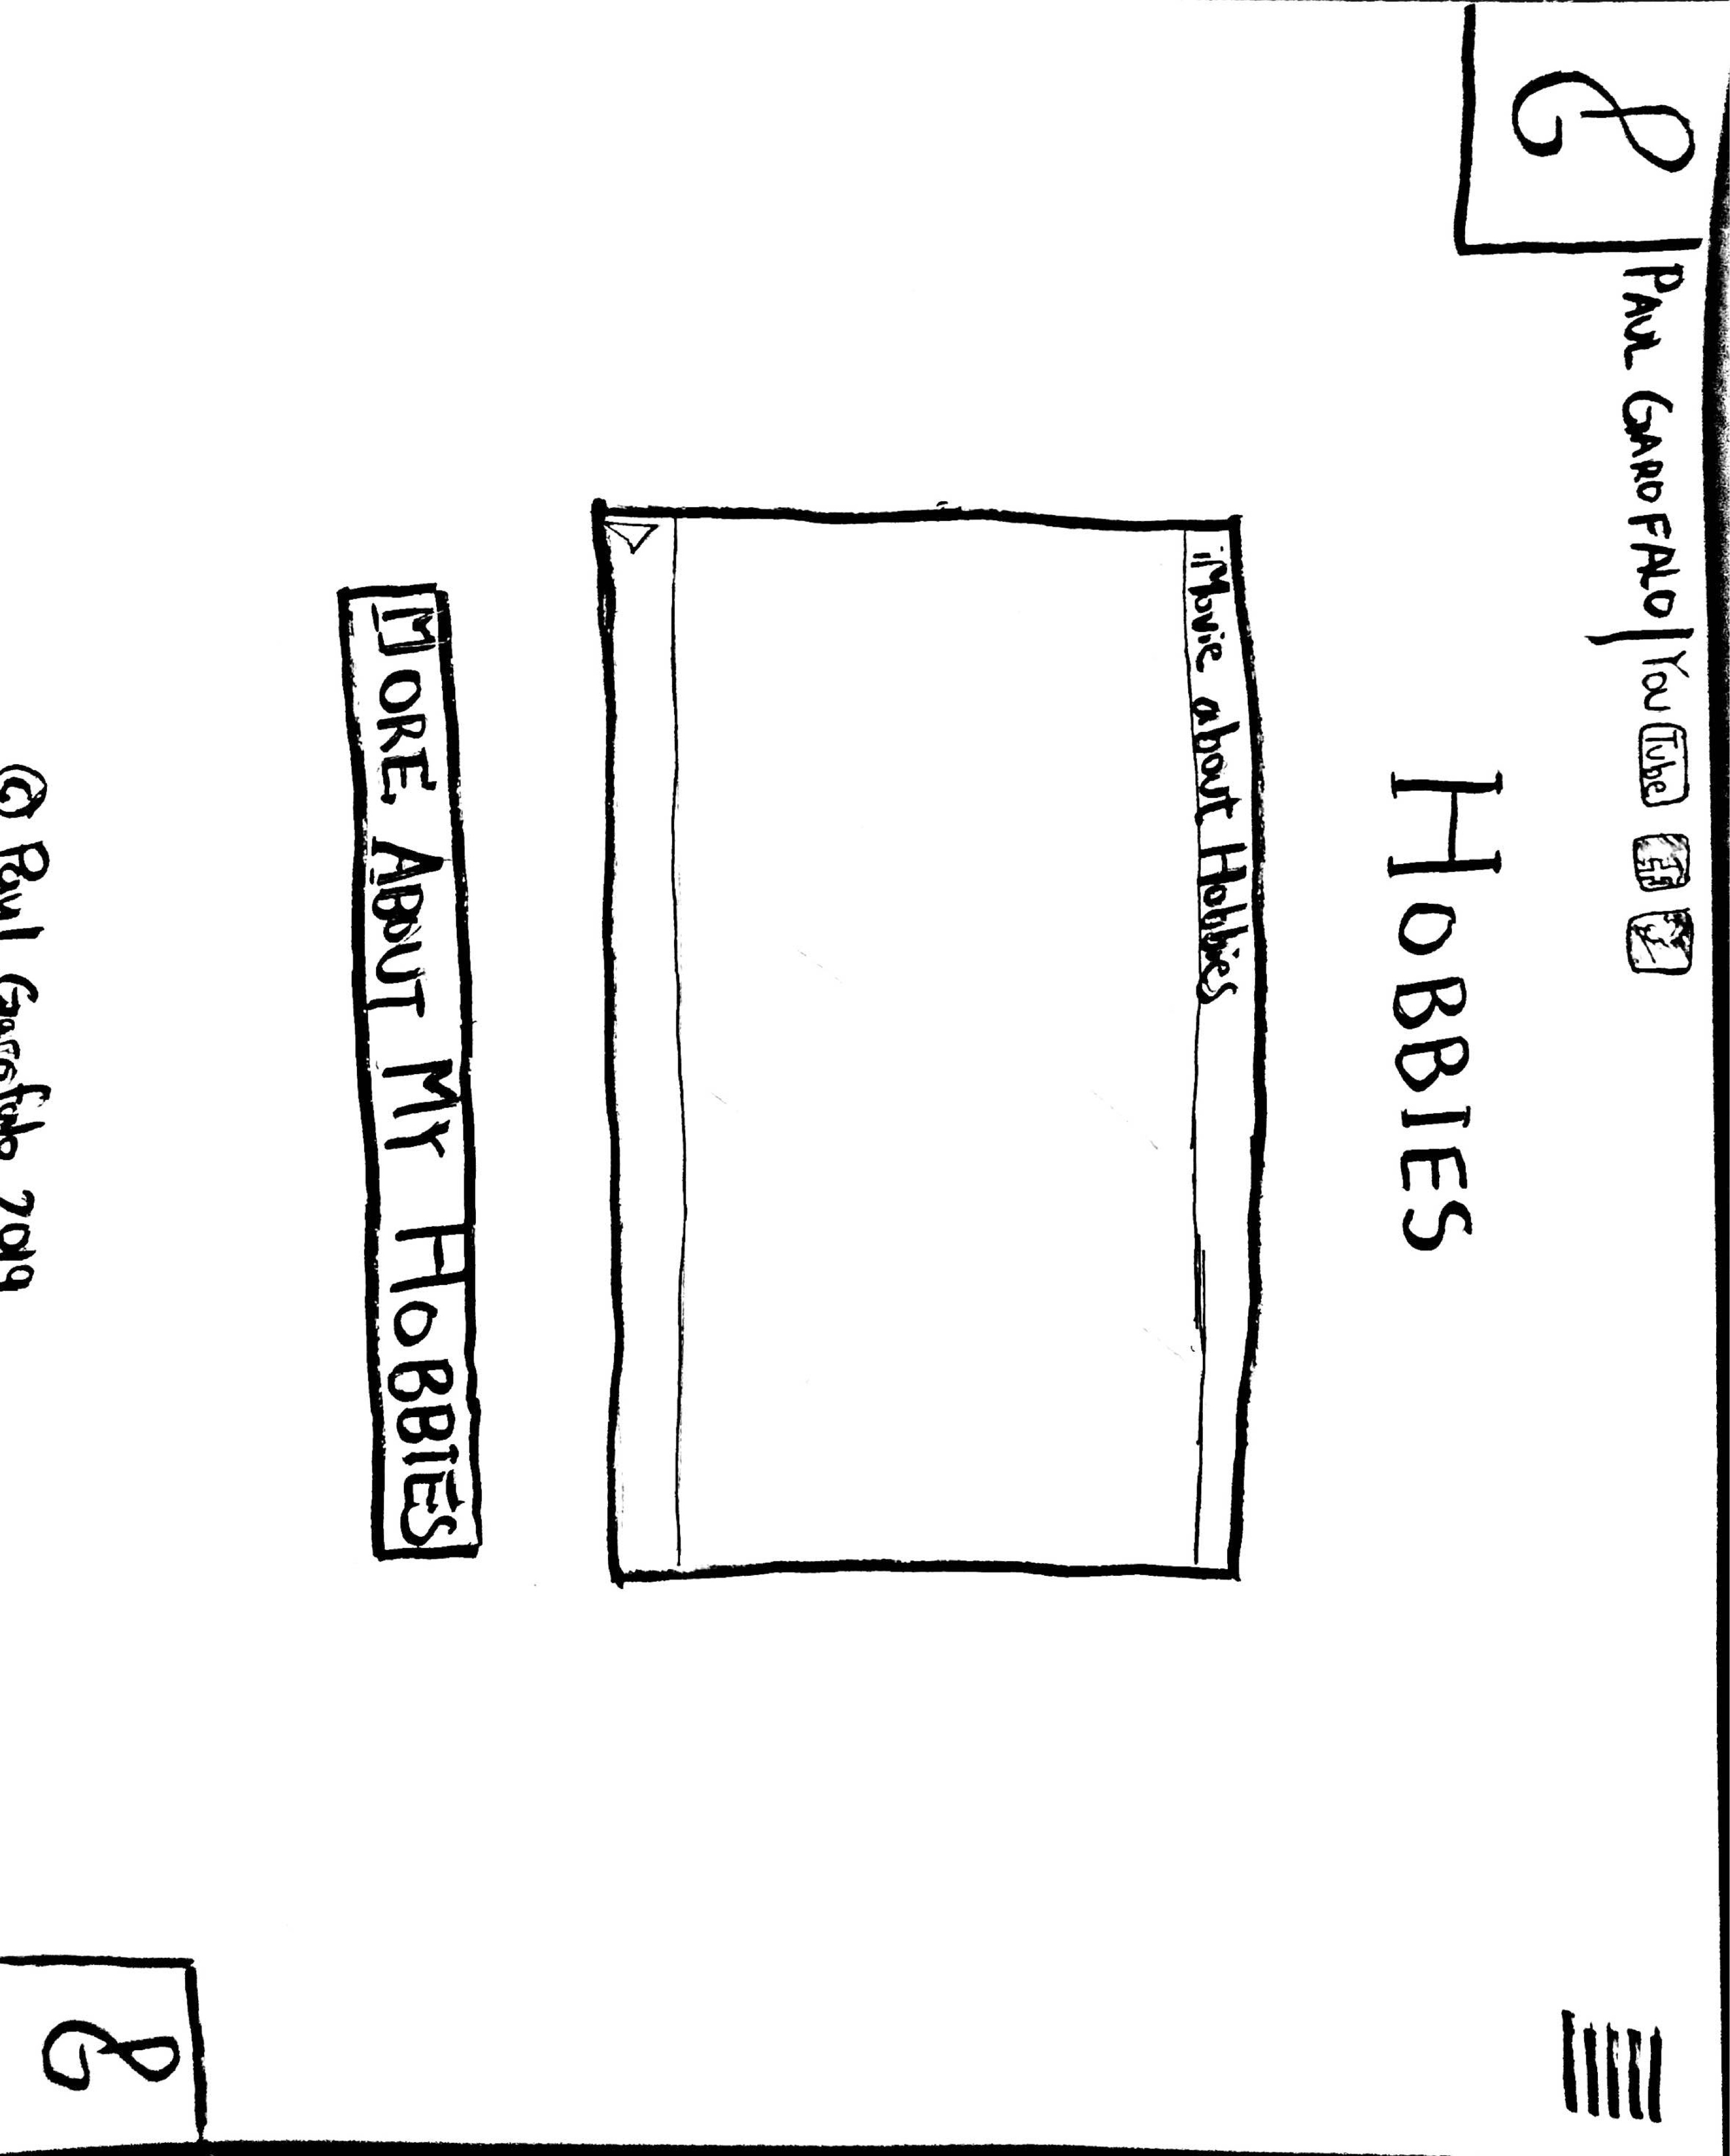 PG PAUL GAROFALO | You Tube f
HOBBIES
iMovie about Hobbies
MORE ABOUT MY HOBBIES
© Paul Garofalo 2019
PG